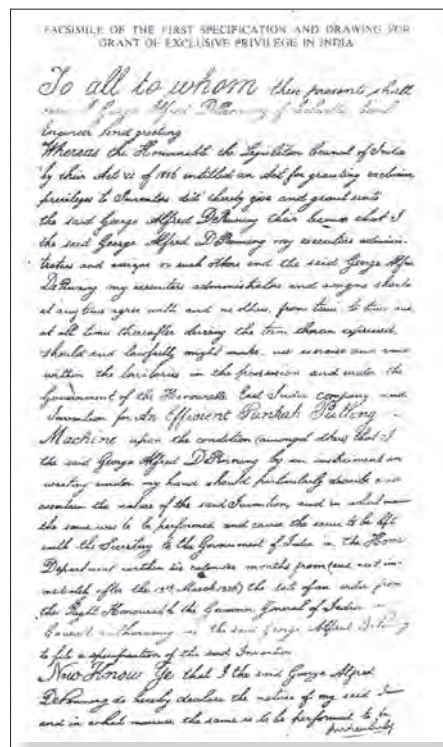 FACSIMILE OF THE FIRST SPECIFICATION AND DRAWING FOR
GRANT OF EXCLUSIVE PRIVILEGE IN INDIA
To all to whom these presents shall
come I George Alfred DePenning of Calcutta Civil
Engineer send greeting
Whereas the Honourable the Legislative Council of India
by their Act vi of 1856 entitled an Act for granting exclusive
privileges to Inventors did thereby give and grant unto
the said George Alfred DePenning their license that I
the said George Alfred DPenning my executors adminis-
trators and assigns or such others and the said George Alfred
DePenning my executors administrators and assigns should
at any time agree with and no others, from time to time and
at all times thereafter during the term therein expressed,
should and lawfully might make, use exercise and
within the territories in the possession and under the
Government of the Honourable East India Company and
Invention for An Efficient Punkah Pulling
Machine upon the condition (amongst others) that I
the said George Alfred DPenning by an instrument in
writing under my hand should particularly describe and
ascertain the nature of the said Invention, and in what
the same was to be performed and cause the same to be left
with the Secretary to the Government of India in the Home
Department within six calendar months from (and next im-
mediately after the March 1856) the date of an order from
the Right Honourable the Governor General of India in
Council authorising me the said George Alfred
to file a specification of the said Invention
Now Know Ye that I the said George Alfred
DePenning do hereby declare the nature of my said I
and in what manner, the same is to be performed to be